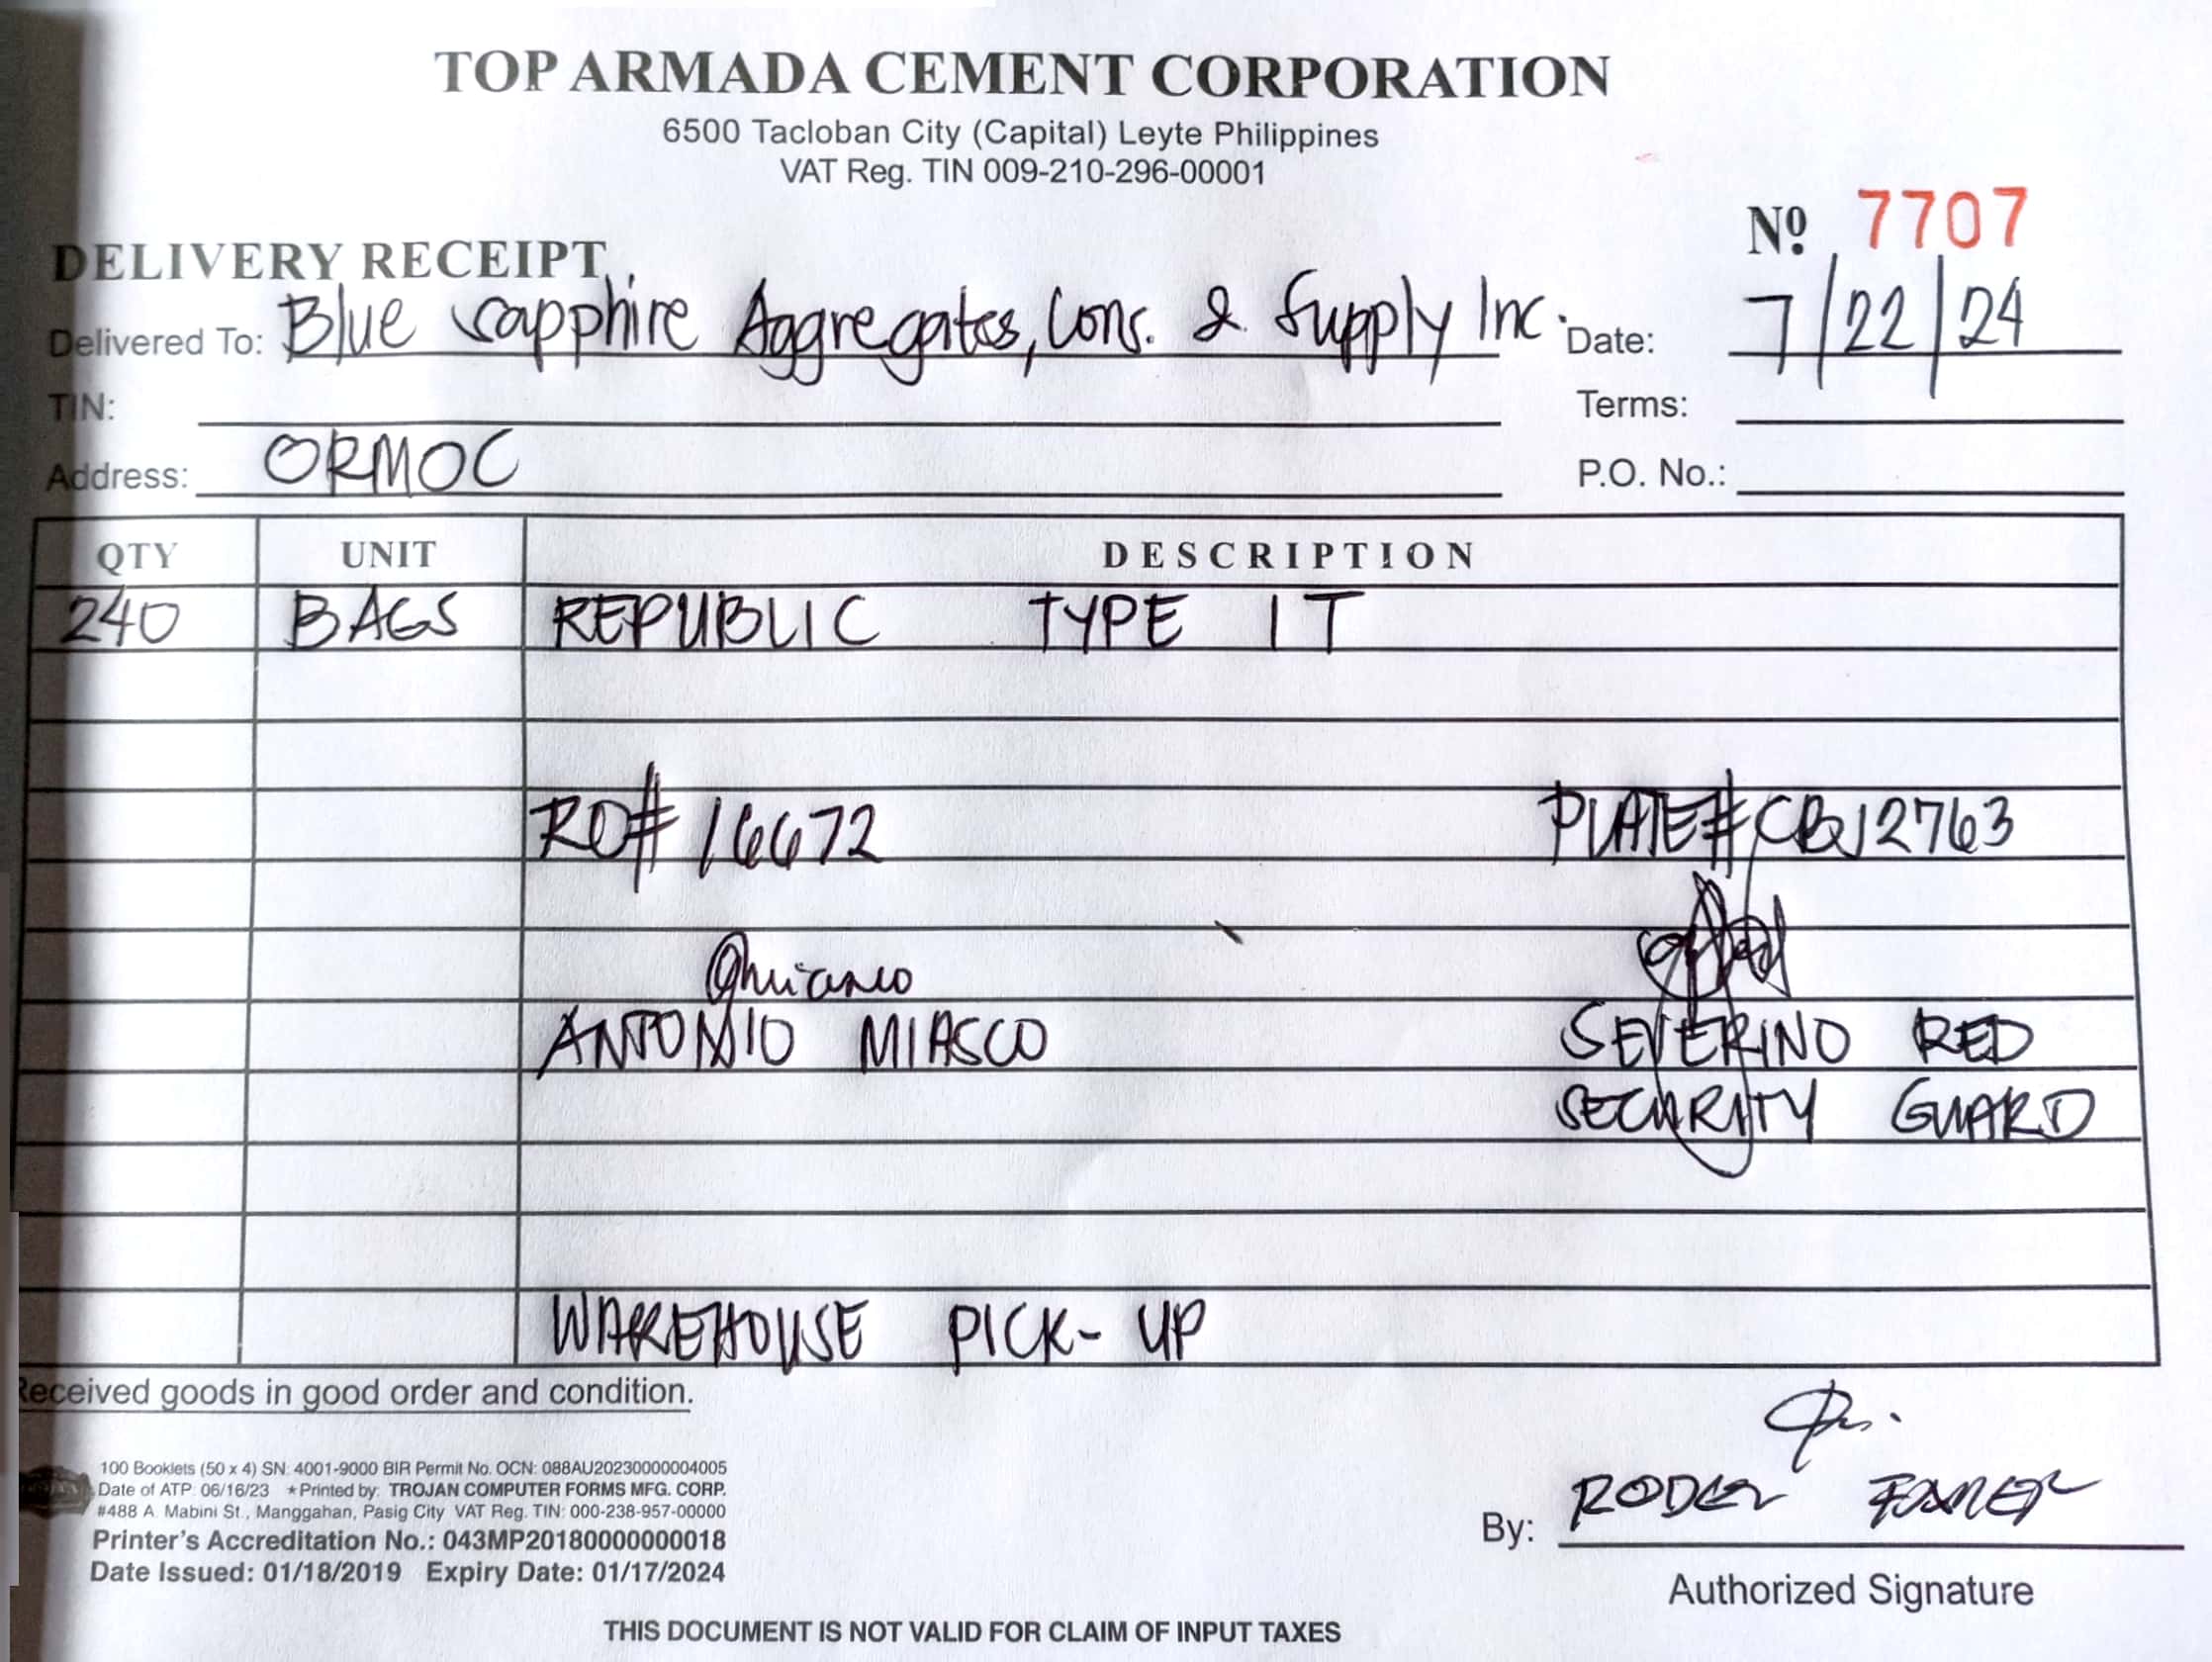 TOP ARMADA CEMENT CORPORATION
6500 Tacloban City (Capital) Leyte Philippines
VAT Reg. TIN 009-210-296-00001
Nº 7707
DELIVERY RECEIPT
Delivered To: Blue Sapphire Aggregates, Cons. & Supply Inc. Date: 7/22/24
TIN: Terms:
Address: ORMOC P.O. No.:
QTY UNIT DESCRIPTION
240 BAGS REPUBLIC TYPE 1T
RO# 16672 PLATE# CBJ2763
ANTONIO MIASCO SEVERINO RED
SECURITY GUARD
WAREHOUSE PICK-UP
Received goods in good order and condition.
100 Booklets (50 x 4) SN: 4001-9000 BIR Permit No. OCN: 088AU20230000004005
Date of ATP: 06/16/23 ★Printed by: TROJAN COMPUTER FORMS MFG. CORP.
#488 A. Mabini St., Manggahan, Pasig City VAT Reg. TIN: 000-238-957-00000
Printer's Accreditation No.: 043MP20180000000018
Date Issued: 01/18/2019 Expiry Date: 01/17/2024
By:
Authorized Signature
THIS DOCUMENT IS NOT VALID FOR CLAIM OF INPUT TAXES